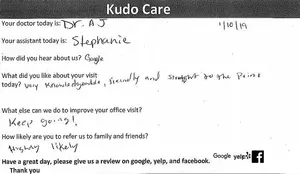 Kudo Care
Your doctor today is: Dr. AJ 1/10/19
Your assistant today is: Stephanie
How did you hear about us? Google
What did you like about your visit
today? Very Knowledgeable, friendly and straight to the Point
What else can we do to improve your office visit?
Keep going!
How likely are you to refer us to family and friends?
Highly likely
Have a great day, please give us a review on google, yelp, and facebook. Google yelp f
Thank you